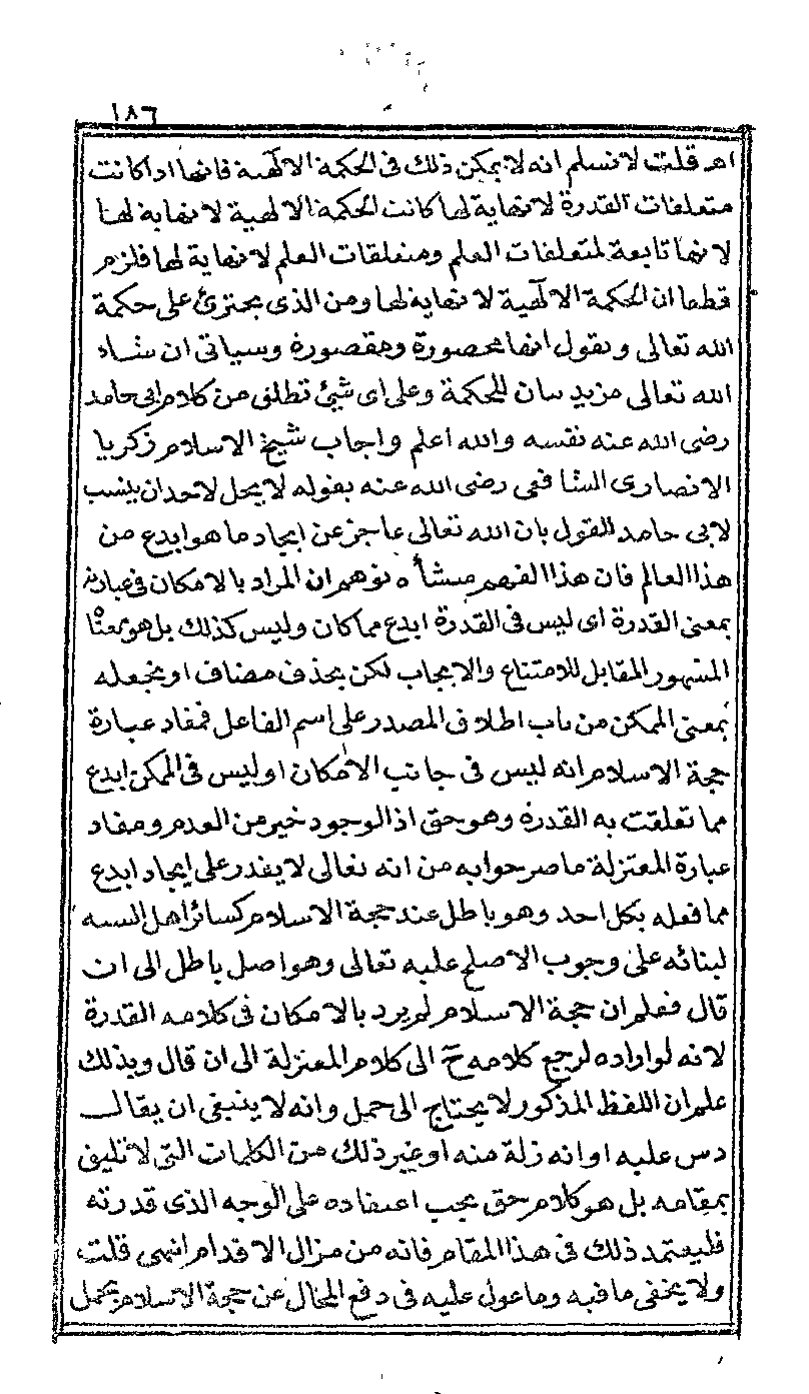 ١٨٦
اهـ قلت لا نسلم انه لا يمكن ذلك في الحكمة الالهية فانها اذا كانت
متعلقات القدرة لا نهاية لها كانت الحكمة الالهية لا نهاية لها
لانها تابعة لمتعلقات العلم ومتعلقات العلم لا نهاية لها فلزم
قطعا ان الحكمة الالهية لا نهاية لها ومن الذى يجترئ على حكمة
الله تعالى ويقول انها محصورة ومقصورة وسياتى ان شاء
الله تعالى مزيد بيان للحكمة وعلى اى شئ تطلق من كلام ابى حامد
رضى الله عنه نفسه والله اعلم واجاب شيخ الاسلام زكريا
الانصارى الشافعى رضى الله عنه بقوله لا يحل لاحد ان ينسب
لابى حامد القول بان الله تعالى عاجز عن ايجاد ما هو ابدع من
هذا العالم فان هذا الفهم منشأه توهم ان المراد بالامكان فى عبارته
بمعنى القدرة اى ليس فى القدرة ابدع مما كان وليس كذلك بل هو بمعناه
المشهور المقابل للامتناع والايجاب لكن بحذف مضاف او بجعله
بمعنى الممكن من باب اطلاق المصدر على اسم الفاعل فمفاد عبارة
حجة الاسلام انه ليس فى جانب الامكان او ليس فى الممكن ابدع
مما تعلقت به القدرة وهو حق اذ الوجود خير من العدم ومفاد
عبارة المعتزلة ما صرحوا به من انه تعالى لا يقدر على ايجاد ابدع
مما فعله بكل احد وهو باطل عند حجة الاسلام كسائر اهل السنة
لبنائه على وجوب الاصلح عليه تعالى وهو اصل باطل الى ان
قال فعلم ان حجة الاسلام لم يرد بالامكان فى كلامه القدرة
لانه لو اراده لرجع كلامه ح الى كلام المعتزلة الى ان قال وبذلك
علم ان اللفظ المذكور لا يحتاج الى حمل وانه لا ينبغى ان يقال
دس عليه او انه زلة منه او غير ذلك من الكلمات التى لا تليق
بمقامه بل هو كلام حق يجب اعتقاده على الوجه الذى قدرته
فليعتمد ذلك فى هذا المقام فانه من مزال الاقدام انتهى قلت
ولا يخفى ما فيه وما عول عليه فى دفع المحال عن حجة الاسلام بحمل